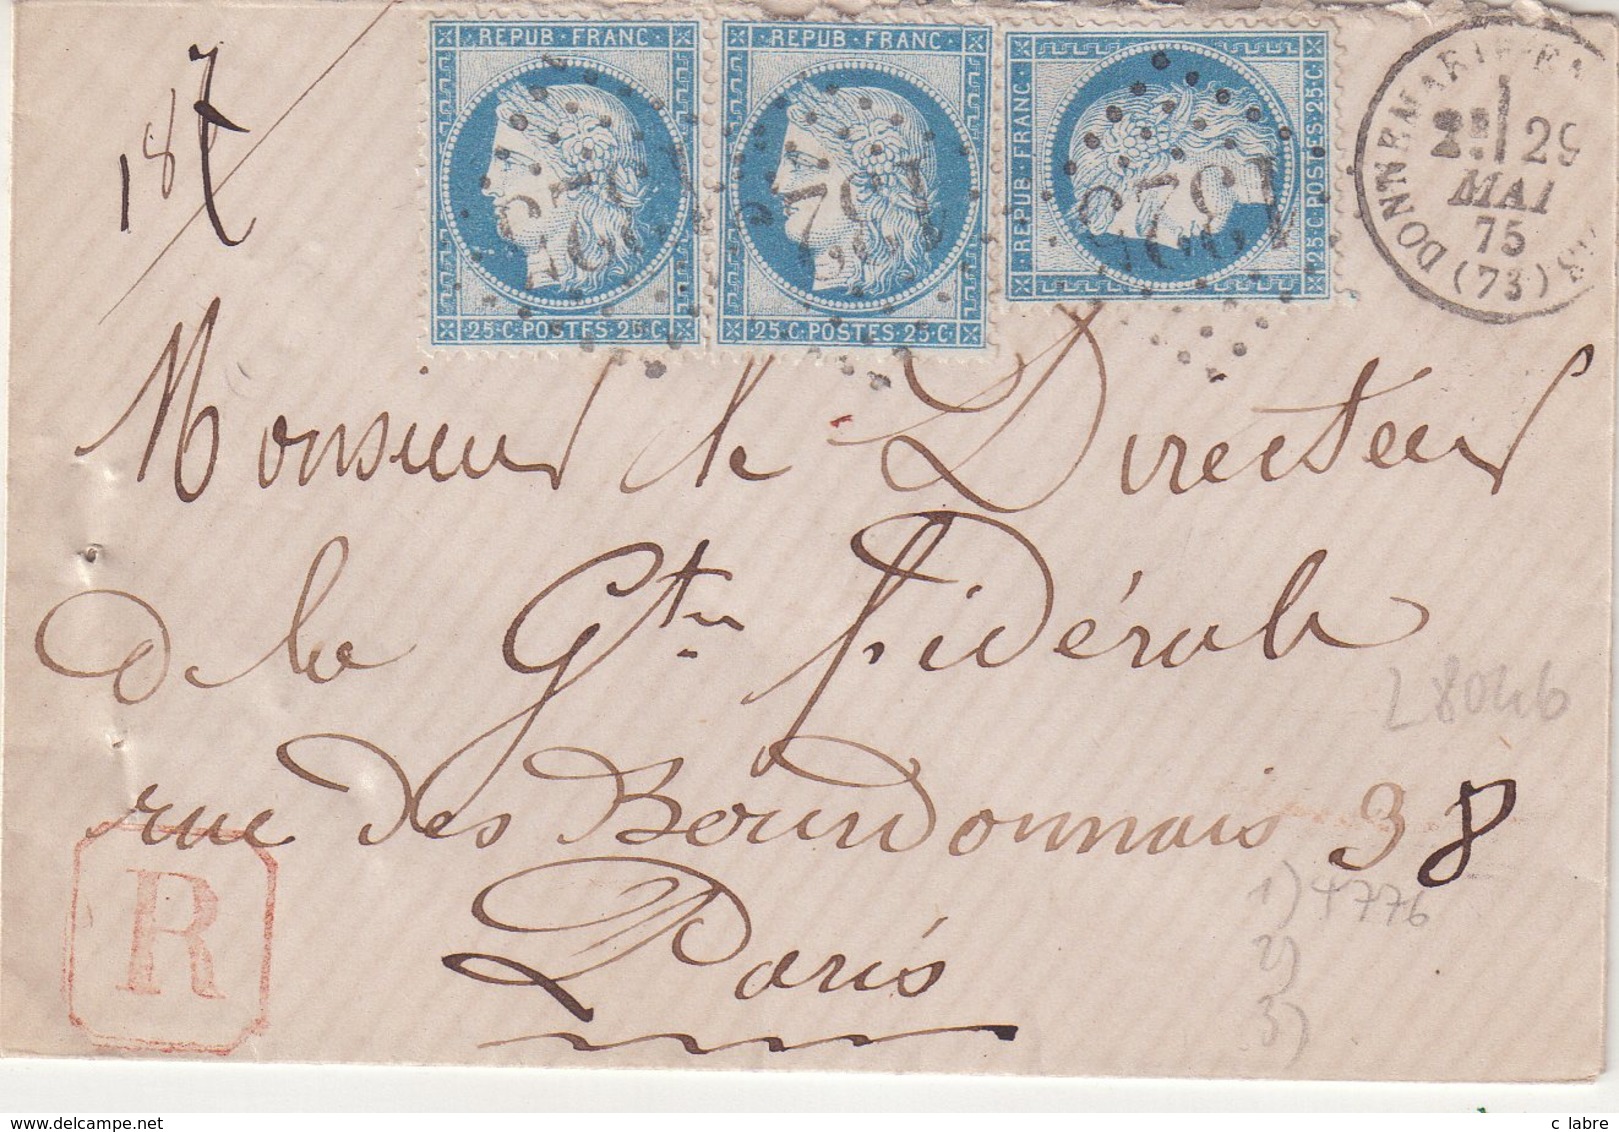 187
REPUB·FRANC
25·C·POSTES·25·C·
1325
REPUB·FRANC
25·C·POSTES·25·C·
132
REPUB·FRANC·
25·C·POSTES·25·C·
1325
DONNEMARIE
2E 29
MAI
75
(73)
Monsieur le Directeur
de la Gtie Fédérale
rue des Bourdonnais 38
Paris
R
L 8046
1) 4776
2)
3)
c labre